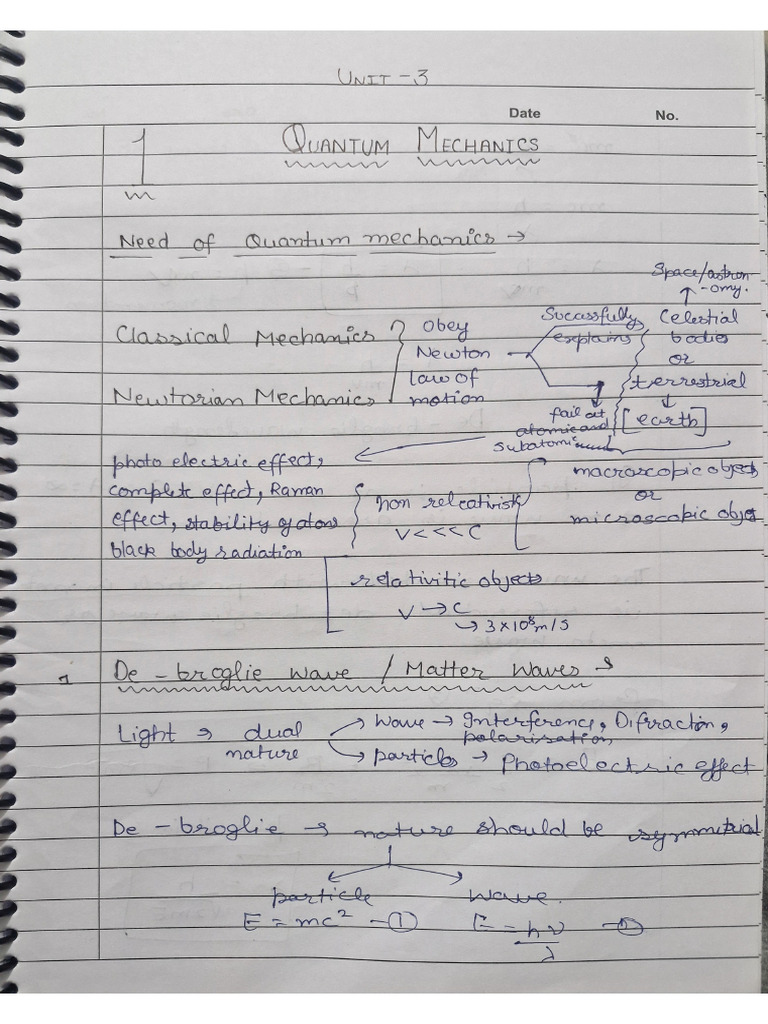 UNIT - 3
Date No.
1 QUANTUM MECHANICS
Need of Quantum mechanics →
Space/astron
-omy.
Classical Mechanics
Newtonian Mechanics
Obey
Newton
law of
motion
Sucassfully
explains
Celestial
bodies
or
terrestrial
[earth]
fail at
atomic and
subatomic
photo electric effect,
complete effect, Raman
effect, stability of atoms
black body radiation
non relativistic
V <<< C
macroscopic objects
or
microscopic object
relativitic objects
V → C
↳ 3×10⁸ m/s
1 De-broglie wave / Matter Waves →
Light → dual
nature
→ Wave → Interference, Difrraction,
polarisation
→ particles → Photoelectric effect
De-broglie → nature should be symmetrical
particle wave.
E = mc² - ① E = hν - ②
λ